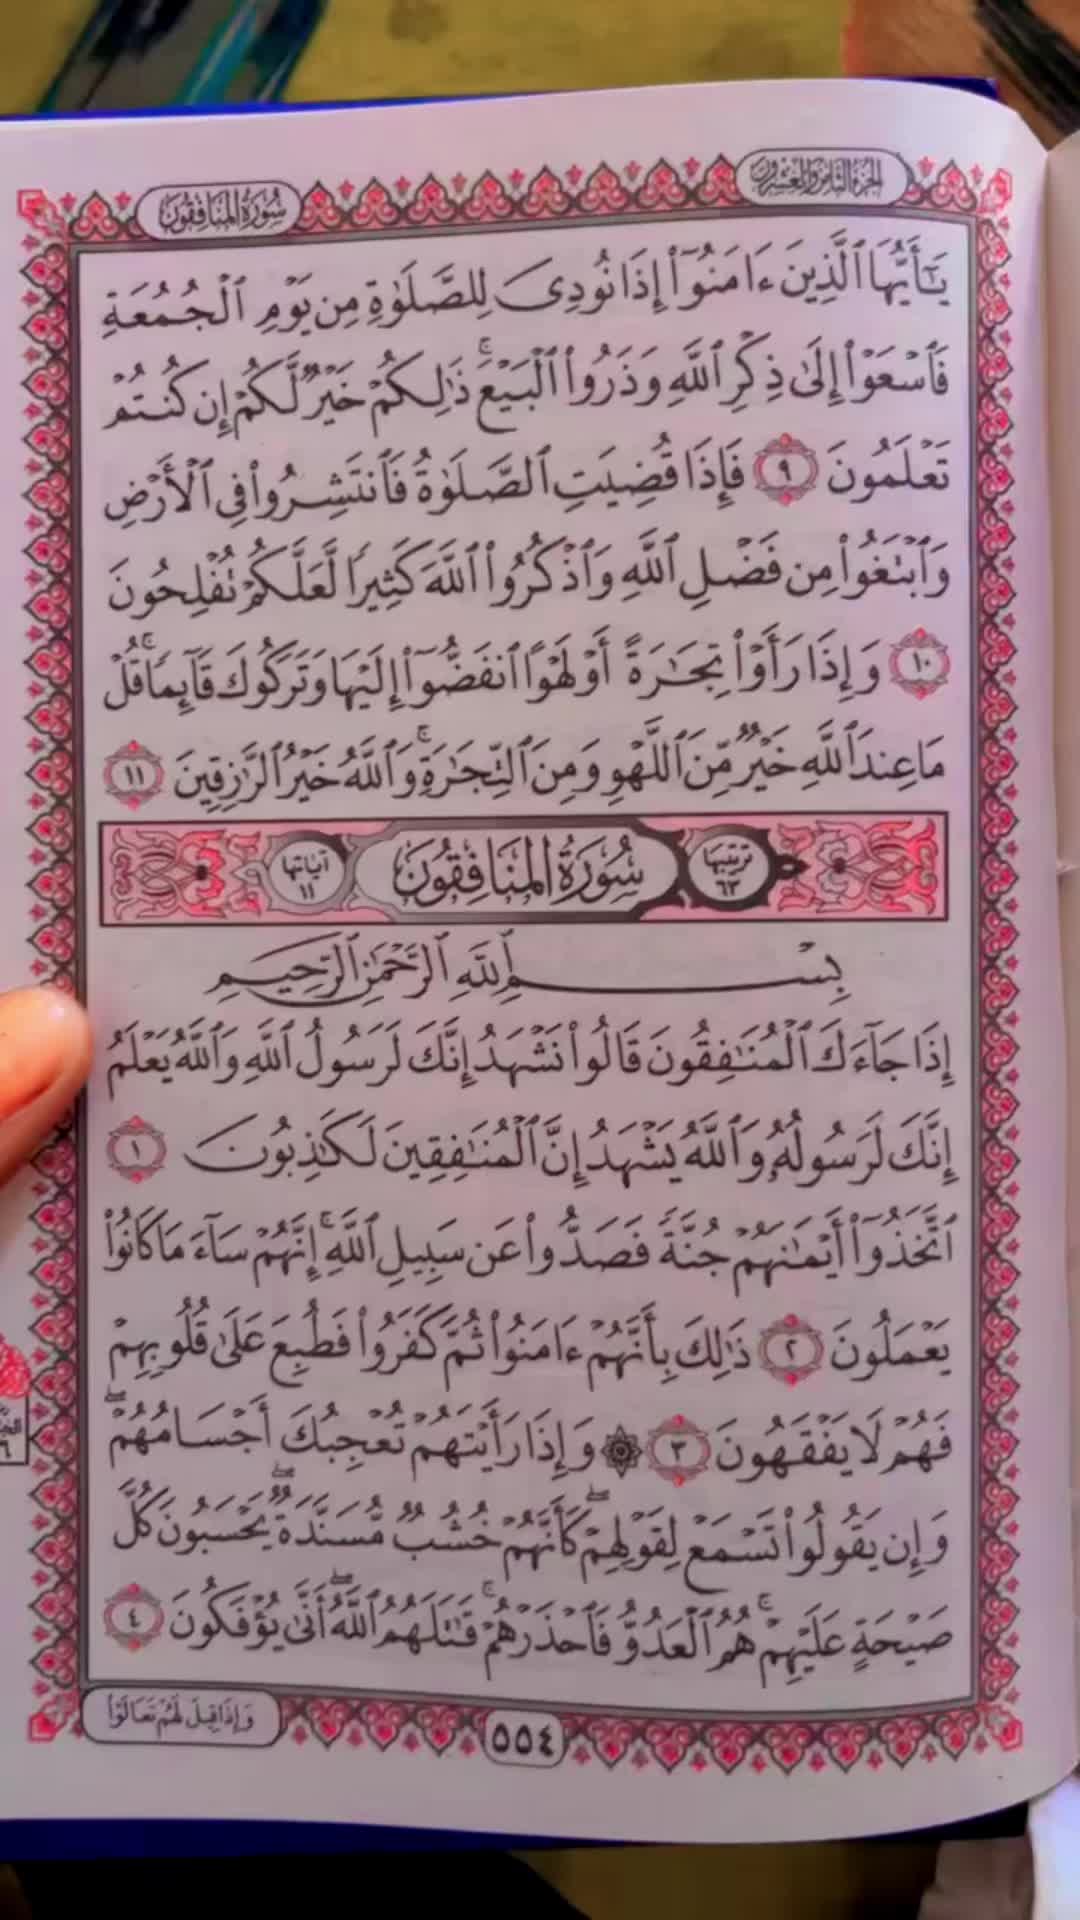 الجزء الثامن والعشرون
سورة المنافقون
يَٰٓأَيُّهَا ٱلَّذِينَ ءَامَنُوٓا۟ إِذَا نُودِىَ لِلصَّلَوٰةِ مِن يَوْمِ ٱلْجُمُعَةِ
فَٱسْعَوْا۟ إِلَىٰ ذِكْرِ ٱللَّهِ وَذَرُوا۟ ٱلْبَيْعَ ۚ ذَٰلِكُمْ خَيْرٌ لَّكُمْ إِن كُنتُمْ
تَعْلَمُونَ ٩ فَإِذَا قُضِيَتِ ٱلصَّلَوٰةُ فَٱنتَشِرُوا۟ فِى ٱلْأَرْضِ
وَٱبْتَغُوا۟ مِن فَضْلِ ٱللَّهِ وَٱذْكُرُوا۟ ٱللَّهَ كَثِيرًا لَّعَلَّكُمْ تُفْلِحُونَ
١٠ وَإِذَا رَأَوْا۟ تِجَٰرَةً أَوْ لَهْوًا ٱنفَضُّوٓا۟ إِلَيْهَا وَتَرَكُوكَ قَآئِمًا ۚ قُلْ
مَا عِندَ ٱللَّهِ خَيْرٌ مِّنَ ٱللَّهْوِ وَمِنَ ٱلتِّجَٰرَةِ ۚ وَٱللَّهُ خَيْرُ ٱلرَّٰزِقِينَ ١١
ترتيبها ٦٣ سُورَةُ المُنَافِقُونَ آياتها ١١
بِسْمِ ٱللَّهِ ٱلرَّحْمَٰنِ ٱلرَّحِيمِ
إِذَا جَآءَكَ ٱلْمُنَٰفِقُونَ قَالُوا۟ نَشْهَدُ إِنَّكَ لَرَسُولُ ٱللَّهِ وَٱللَّهُ يَعْلَمُ
إِنَّكَ لَرَسُولُهُۥ وَٱللَّهُ يَشْهَدُ إِنَّ ٱلْمُنَٰفِقِينَ لَكَٰذِبُونَ ١
ٱتَّخَذُوٓا۟ أَيْمَٰنَهُمْ جُنَّةً فَصَدُّوا۟ عَن سَبِيلِ ٱللَّهِ ۚ إِنَّهُمْ سَآءَ مَا كَانُوا۟
يَعْمَلُونَ ٢ ذَٰلِكَ بِأَنَّهُمْ ءَامَنُوا۟ ثُمَّ كَفَرُوا۟ فَطُبِعَ عَلَىٰ قُلُوبِهِمْ
فَهُمْ لَا يَفْقَهُونَ ٣ ۞ وَإِذَا رَأَيْتَهُمْ تُعْجِبُكَ أَجْسَامُهُمْ ۖ
وَإِن يَقُولُوا۟ تَسْمَعْ لِقَوْلِهِمْ ۖ كَأَنَّهُمْ خُشُبٌ مُّسَنَّدَةٌ ۖ يَحْسَبُونَ كُلَّ
صَيْحَةٍ عَلَيْهِمْ ۚ هُمُ ٱلْعَدُوُّ فَٱحْذَرْهُمْ ۚ قَٰتَلَهُمُ ٱللَّهُ ۖ أَنَّىٰ يُؤْفَكُونَ ٤
وَإِذَا قِيلَ لَهُمْ تَعَالَوْا۟
٥٥٤